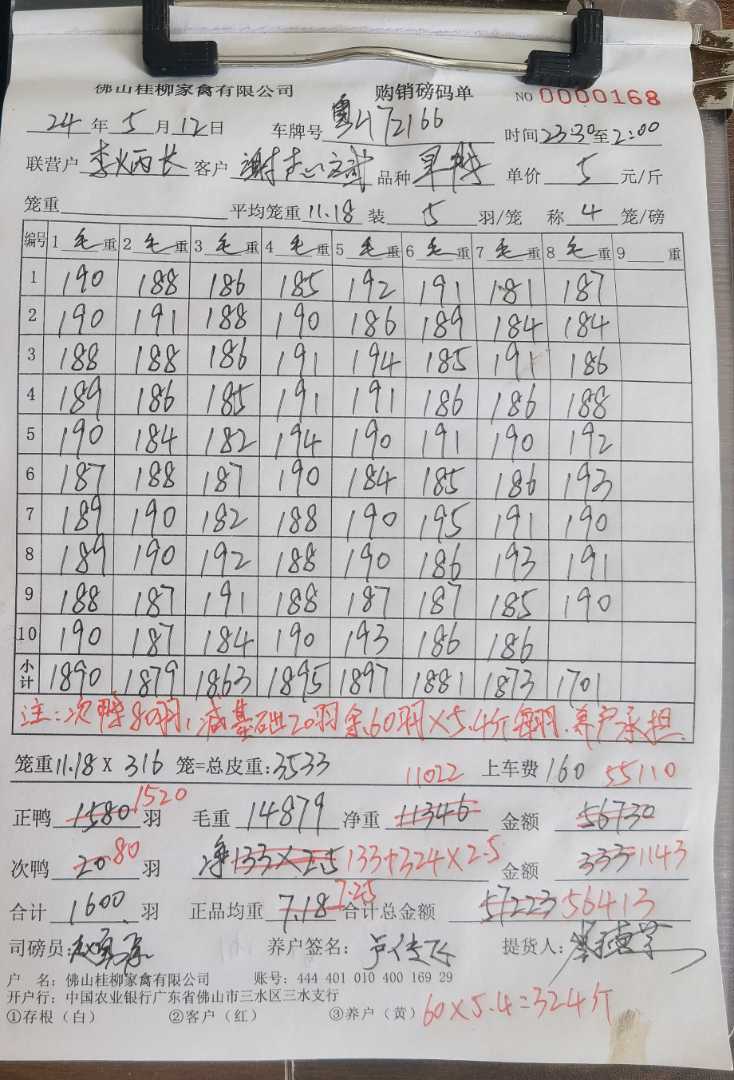 佛山桂柳家禽有限公司 购销磅码单 NO 0000168
24 年 5 月 12 日 车牌号 粤472166 时间 23:30 至 2:00
联营户 李炳长 客户 品种 单价 5 元/斤
笼重 平均笼重 11.18 装 5 羽/笼 称 4 笼/磅
编号 1 毛 重 2 毛 重 3 毛 重 4 毛 重 5 毛 重 6 毛 重 7 毛 重 8 毛 重 9 重
1 190 188 186 185 192 191 181 187
2 190 191 188 190 186 189 184 184
3 188 188 186 191 194 185 191 186
4 189 186 185 191 191 186 186 188
5 190 184 182 194 190 191 190 192
6 187 188 187 190 184 185 186 193
7 189 190 182 188 190 195 191 190
8 189 190 192 188 190 186 193 191
9 188 187 191 188 187 187 185 190
10 190 187 184 190 193 186 186
小计 1890 1879 1863 1895 1897 1881 1873 1701
注:次鸭80羽,减基础20羽余60羽×5.4斤每羽.养户承担.
笼重 11.18 X 316 笼=总皮重:3533 11022 上车费 160 55110
正鸭 1580 1520 羽 毛重 14879 净重 11346 金额 56730
次鸭 20 80 羽 净133×2.5 133+324×2.5 金额 333 1143
合计 1600 羽 正品均重 7.18 7.25 合计总金额 57223 56413
司磅员: 养户签名: 提货人:
户 名:佛山桂柳家禽有限公司 账号:444 401 010 400 169 29
开户行:中国农业银行广东省佛山市三水区三水支行
①存根(白) ②客户(红) ③养户(黄) 60×5.4=324斤